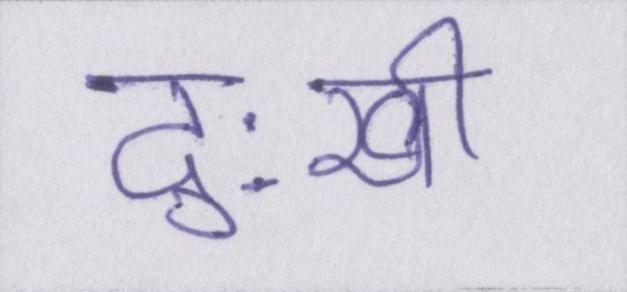 दुःखी